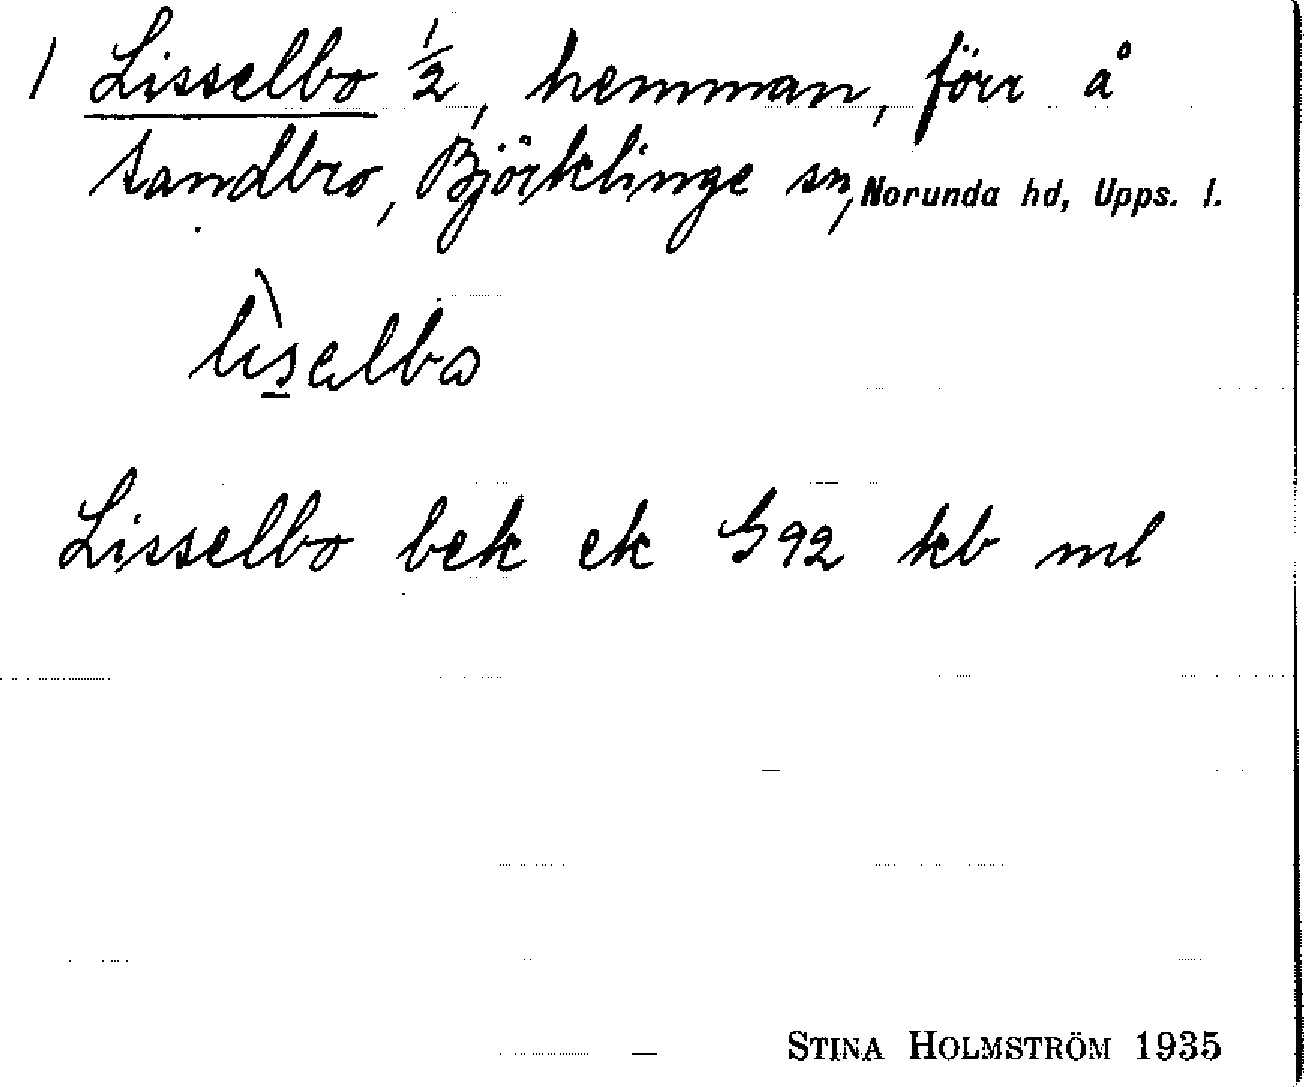 1 Lisselbo ½, hemman, förr å
Sandbro, Björklinge sn, Norunda hd, Upps. l.
Lisselbo bek ek G 92 kb ml
STINA HOLMSTRÖM 1935